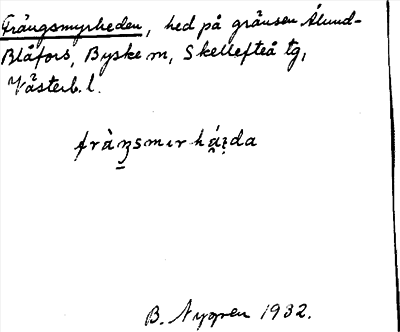 Trångsmyrheden, hed på gränsen Ålund-
Blåfors, Byske m, Skellefteå tg,
Västerb. l.
fràŋsmırhá̯i̯da
B. Nygren 1932.